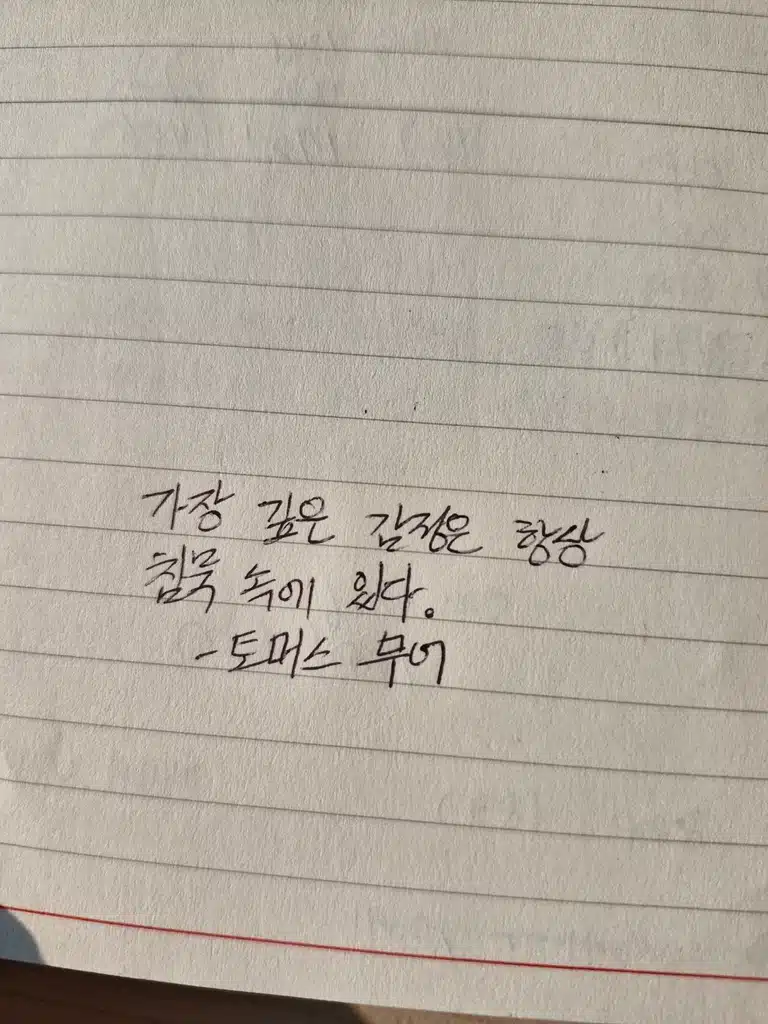 가장 깊은 감정은 항상
침묵 속에 있다.
- 토머스 무어